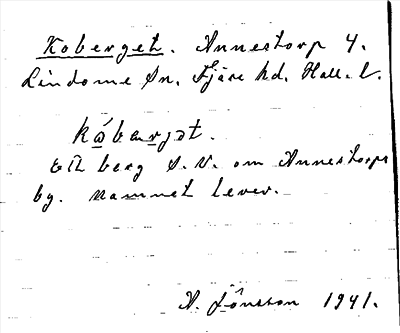 Koberget. Annestorp 4.
Lindome Sn. Fjäre hd. Hall. l.
kóbærjət.
Ett berg S.V. om Annestorps
by. Namnet lever.
A. Jönsson 1941.